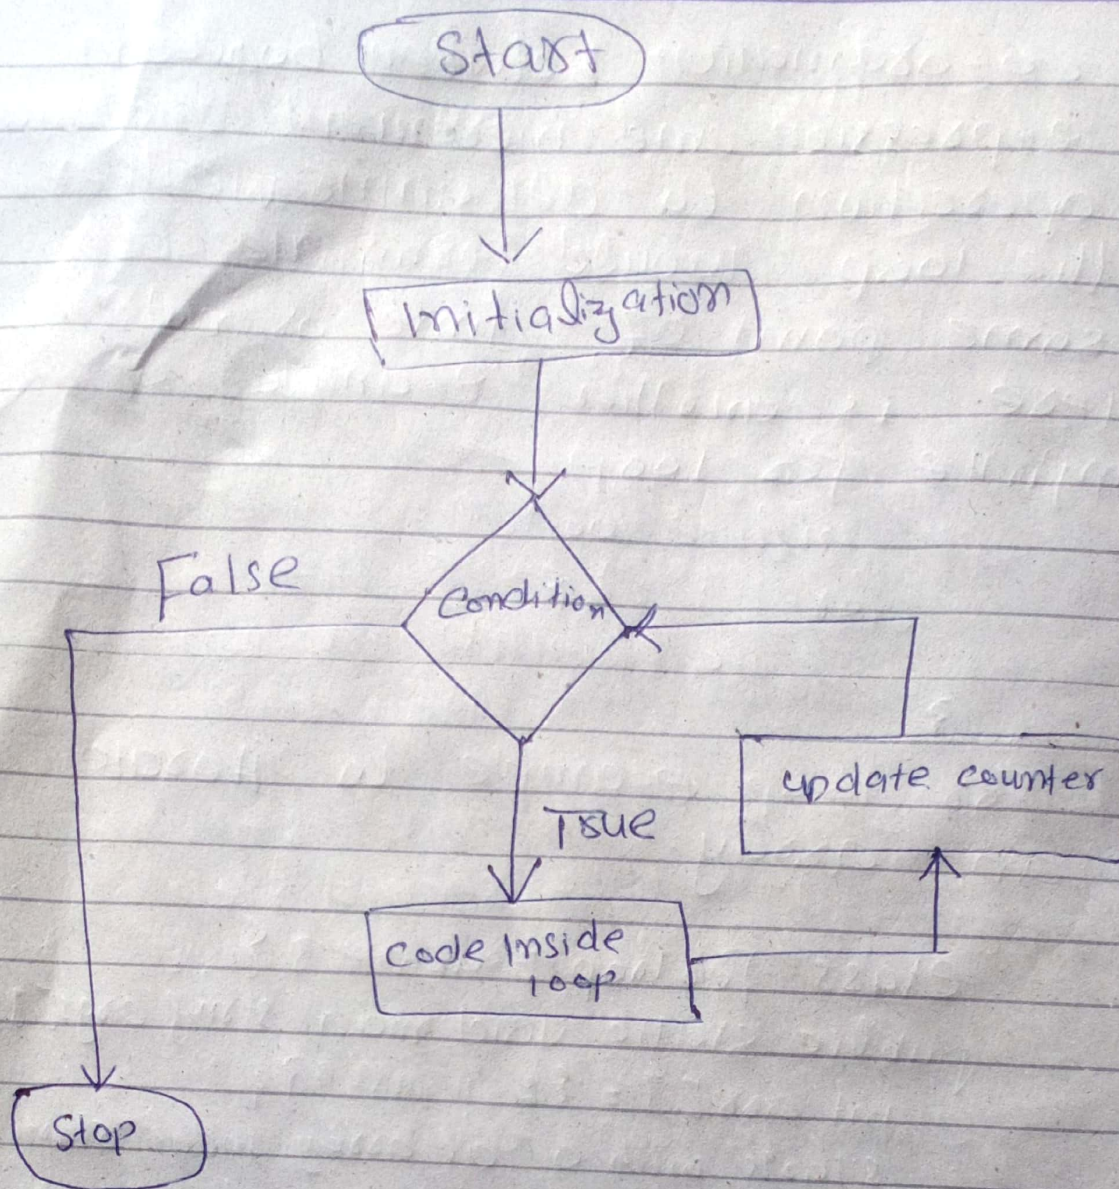 Start
Initialization
False
Condition
update counter
True
Code Inside
loop
Stop